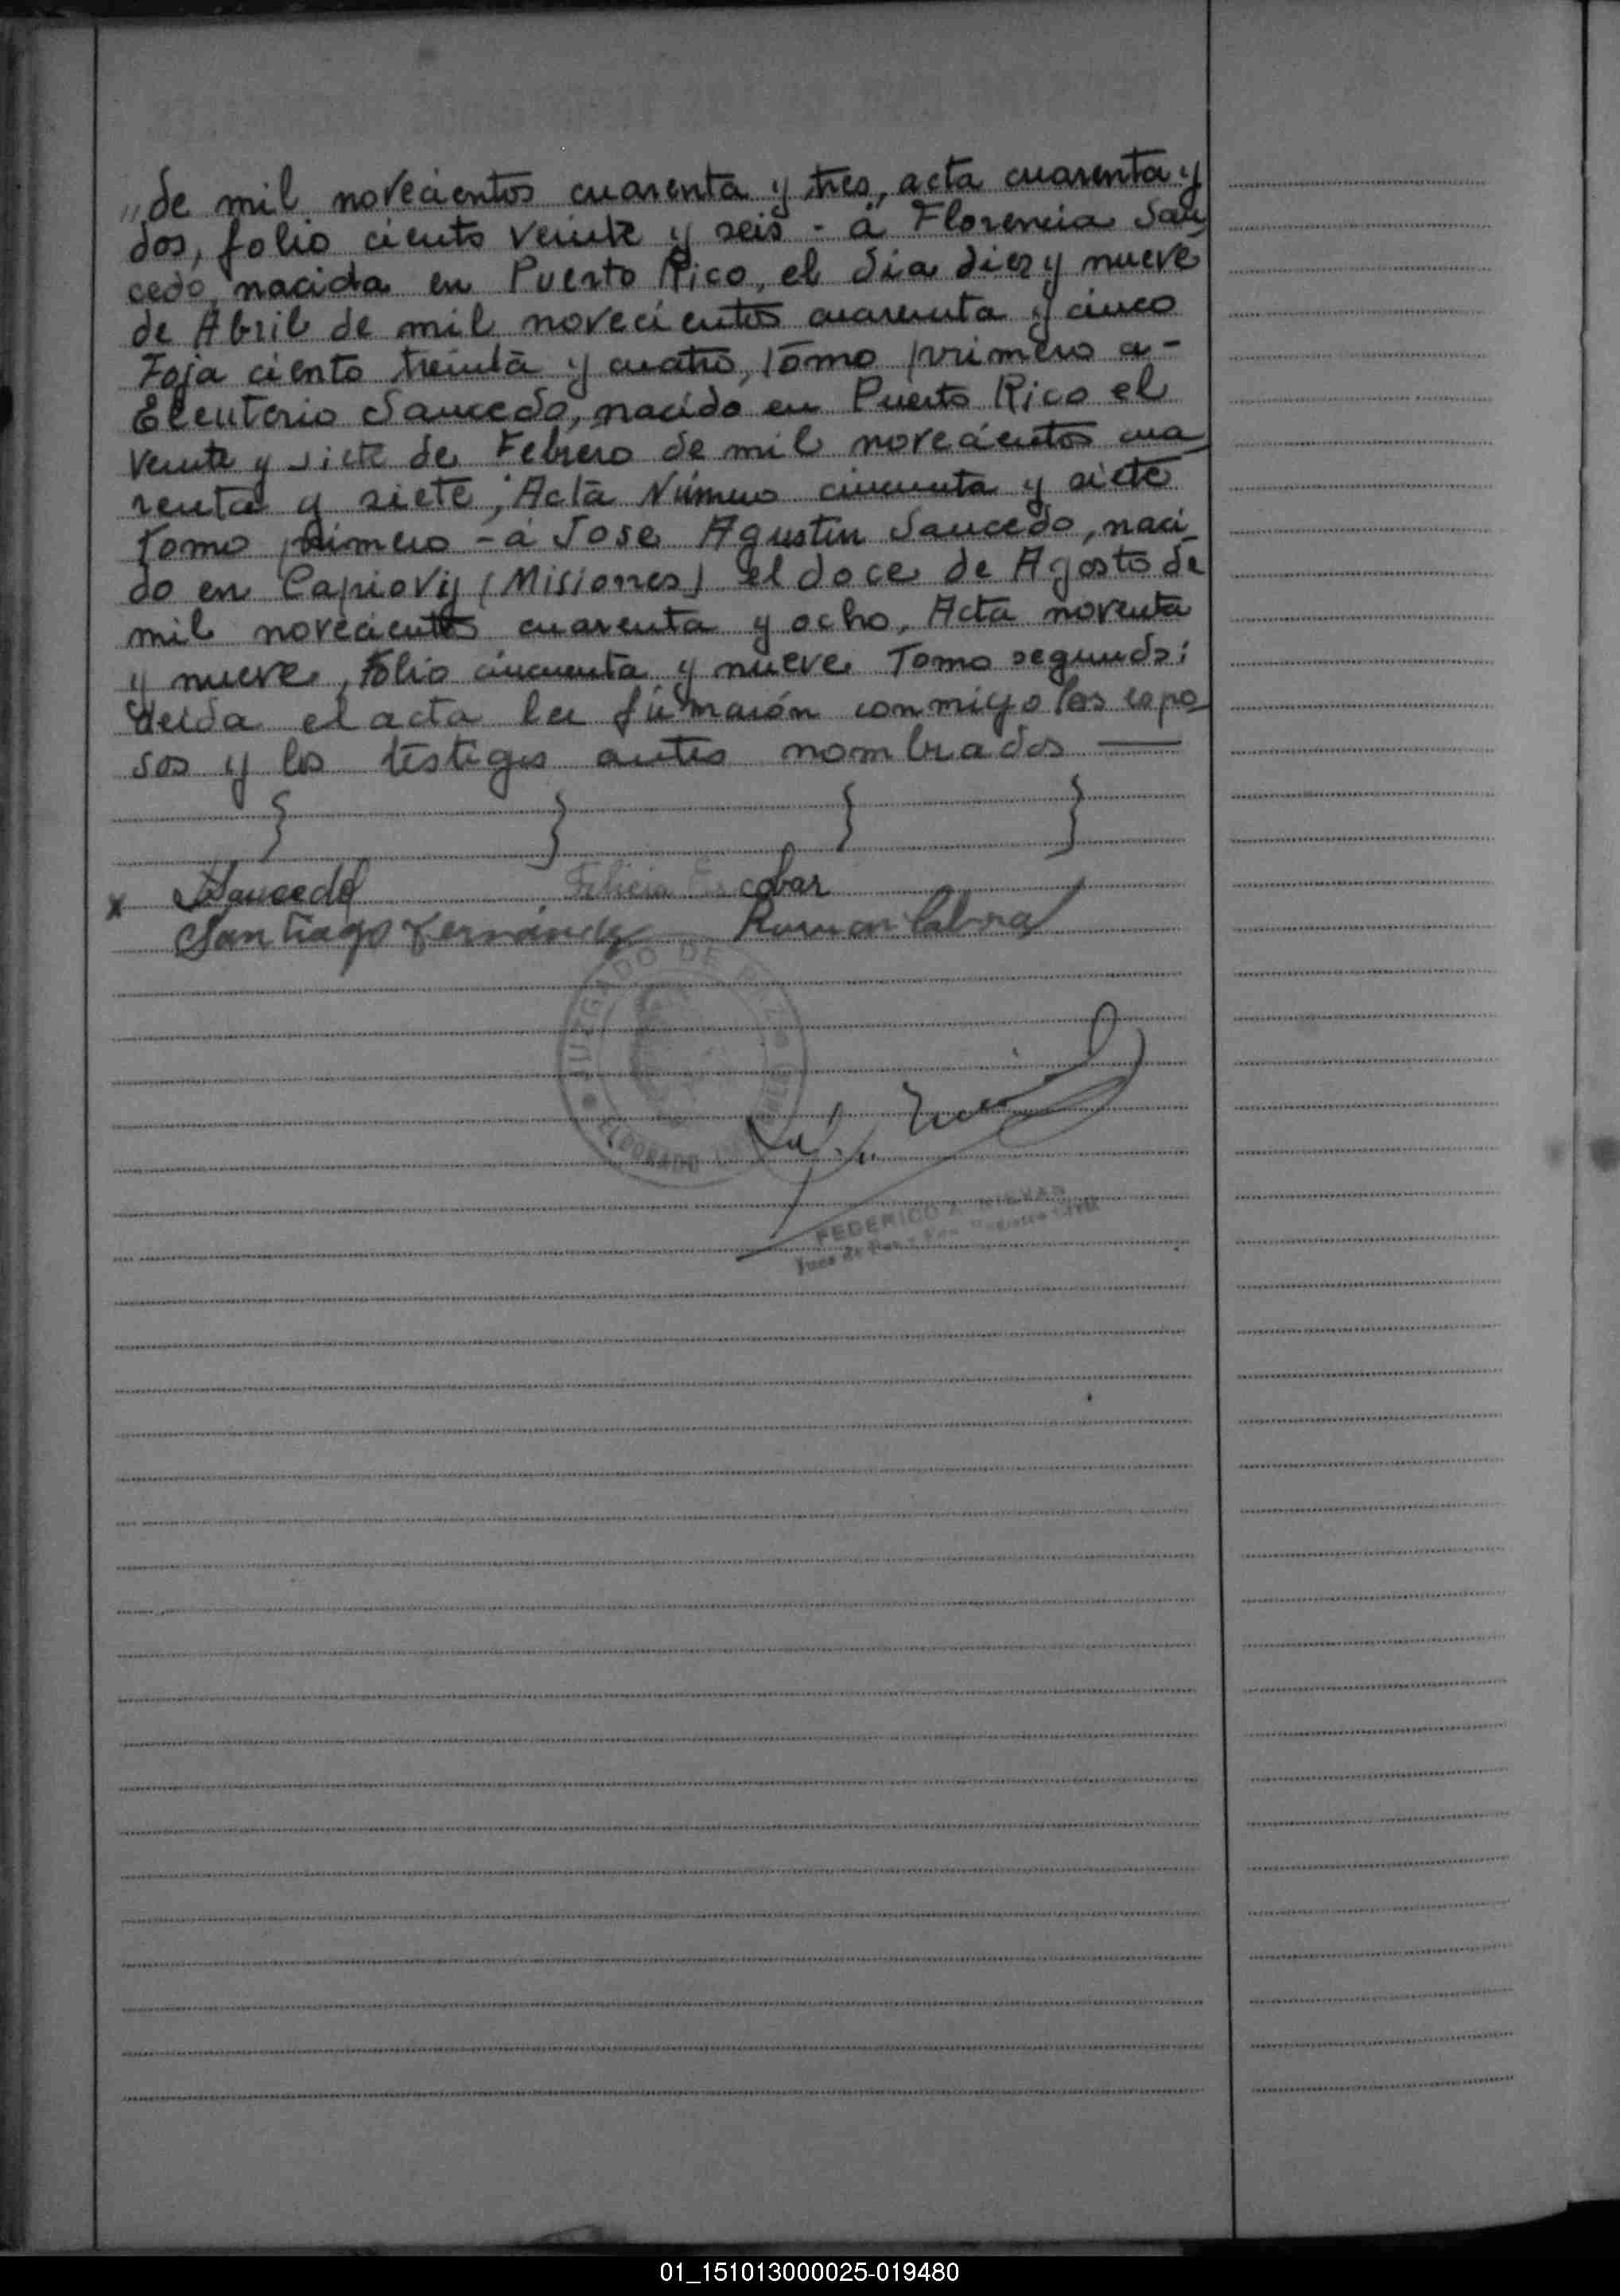 „de mil novecientos cuarenta y tres, acta cuarenta y
dos, folio ciento veinte y seis - á Florencia Sau
cedo, nacida en Puerto Rico, el dia diez y nueve
de Abril de mil novecientos cuarenta y cinco
Foja ciento treinta y cuatro, Tomo primero a -
Eleuterio Saucedo, nacido en Puerto Rico el
veinte y siete de Febrero de mil novecientos cua
renta y siete, Acta Número cincuenta y siete
Tomo primero - á Jose Agustin Saucedo, naci
do en Capiovij (Misiones) el doce de Agosto de
mil novecientos cuarenta y ocho, Acta noventa
y nueve, Folio cincuenta y nueve Tomo segundo:
Leida el acta la firmarón conmigo los espo
sos y los testigos antes nombrados —
x Saucedo Felicia Escobar
Santiago Fernández Roman Cabral
JUZGADO DE PAZ
ELDORADO
FEDERICO
Juez de Paz Registro Civil
01_151013000025-019480